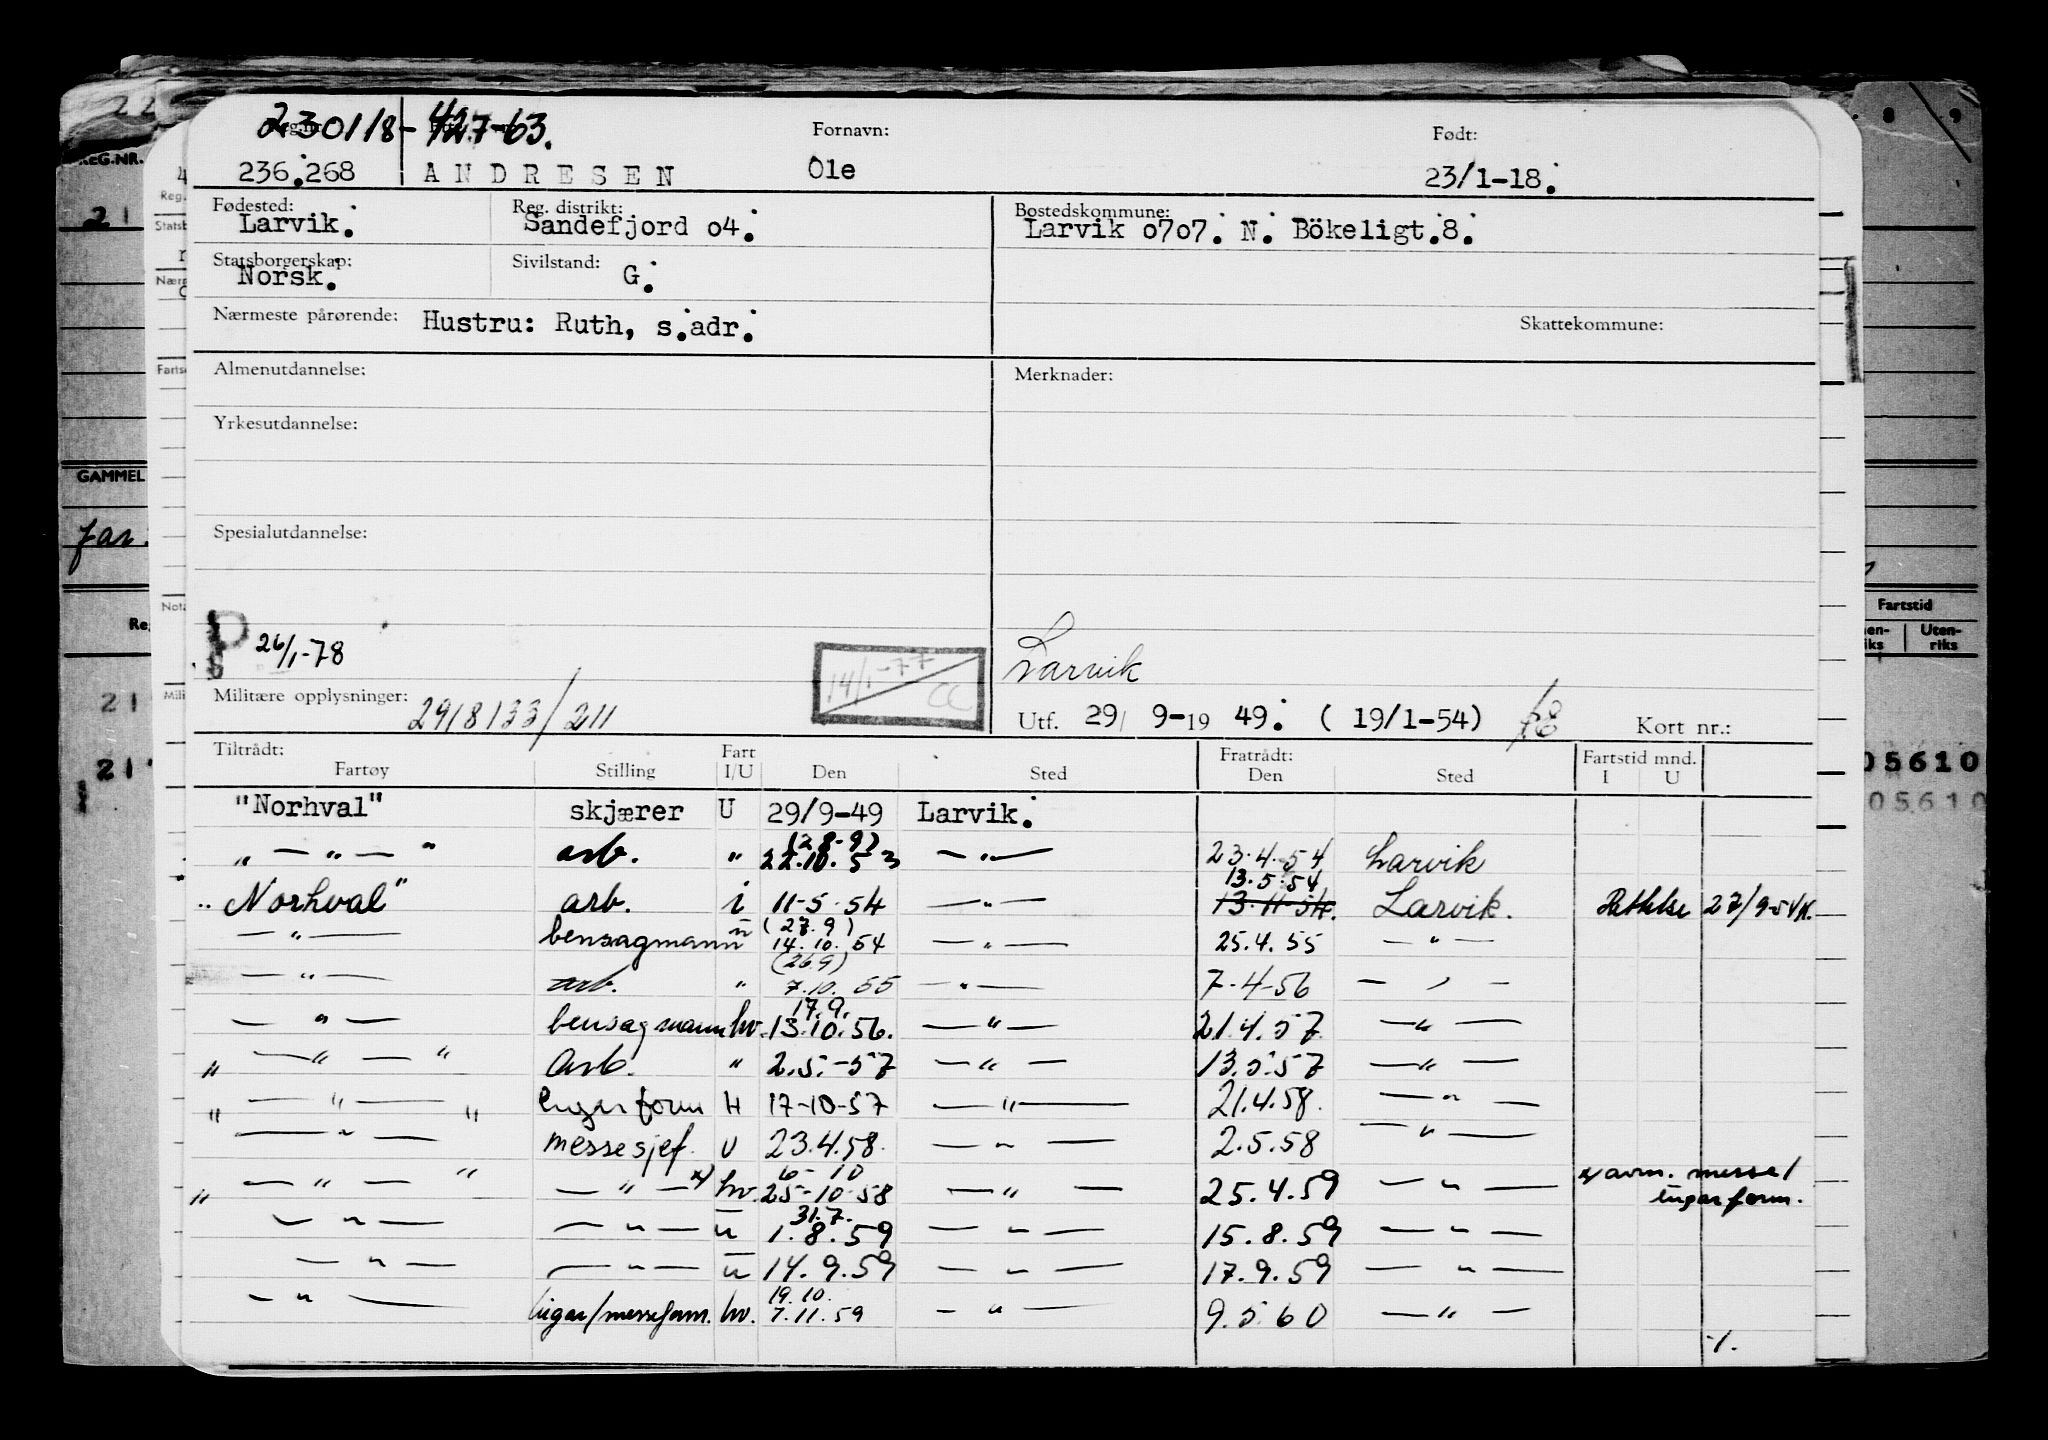 230118-42763.
Reg.nr. Fornavn: Født:
236.268 ANDRESEN Ole 23/1-18.
Fødested: Reg. distrikt: Bostedskommune:
Larvik. Sandefjord o4. Larvik o7o7. N. Bökeligt.8.
Statsborgerskap: Sivilstand:
Norsk. G.
Nærmeste pårørende: Hustru: Ruth, s.adr. Skattekommune:
Almenutdannelse: Merknader:
Yrkesutdannelse:
Spesialutdannelse:
P 26/1-78 14/1-77 CC Larvik
Militære opplysninger: 2918133/211 Utf. 29/ 9-19 49. ( 19/1-54) Kort nr.:
Tiltrådt: Fart Fratrådt: Fartstid mnd.
Fartøy Stilling I/U Den Sted Den Sted I U
"Norhval" skjærer U 29/9-49 Larvik.
(28-9)
„ — „ — " arb. " 22.10.53 — " — 23.4.54 Larvik
13.5.54
"Norhval" arb. i 11-5-54 — " — 13-11-54. Larvik. Rettelse 27/9-54
(27.9)
— " — bensagmann u 14.10.54 — " — 25.4.55 — " —
(26.9)
— " — arb. " 7.10.55 — " — 7-4-56 — " —
17.9.
— " — bensagmann hv. 13.10.56. — " — 21.4.57 — " —
" — " — " Arb. " 2.5.-57 — " — 13.5.57 — " —
" — " — " lugarform H 17-10-57 — " — 21.4.58. — " —
— " — messesjef. U 23.4.58. — " — 2.5.58 — " —
6-10
" — " — " — " — x) hv. 25-10-58 — " — 25.4.59 — " — x) avm. messe/
lugarform.
31.7.
— " — — " — u 1.8.59 — " — 15.8.59 — " —
— " — — " — u 14.9.59 — " — 17.9.59 — " —
19.10.
— " — lugar/messeform. hv. 7.11.59 — " — 9.5.60 — " —
-/.
REG.NR.
GAMMEL
Fartstid
Uten-
riks
05610
05610